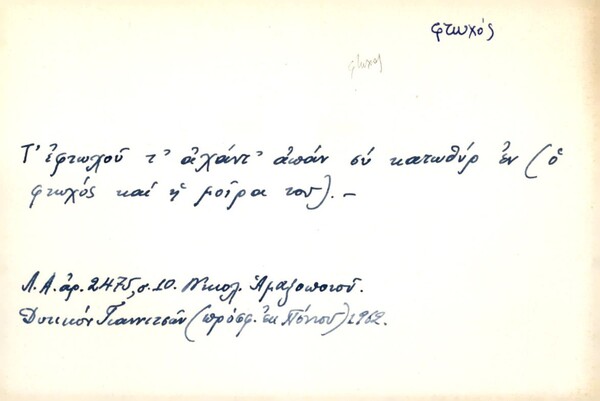 φτωχός
φτωχος
Τ' ἐφτωχοῦ τ' ἀχάντ' ἀπάν σύ κατωθύρ ἐν (ὁ
φτωχός καί ἡ μοῖρα του). –
Λ.Α. ἀρ. 2475, σ. 10. Νικολ. Ἁμαξοποιοῦ.
Δυτικόν Γιαννιτσῶν (πρόσφ. ἐκ Πόντου) 1962.